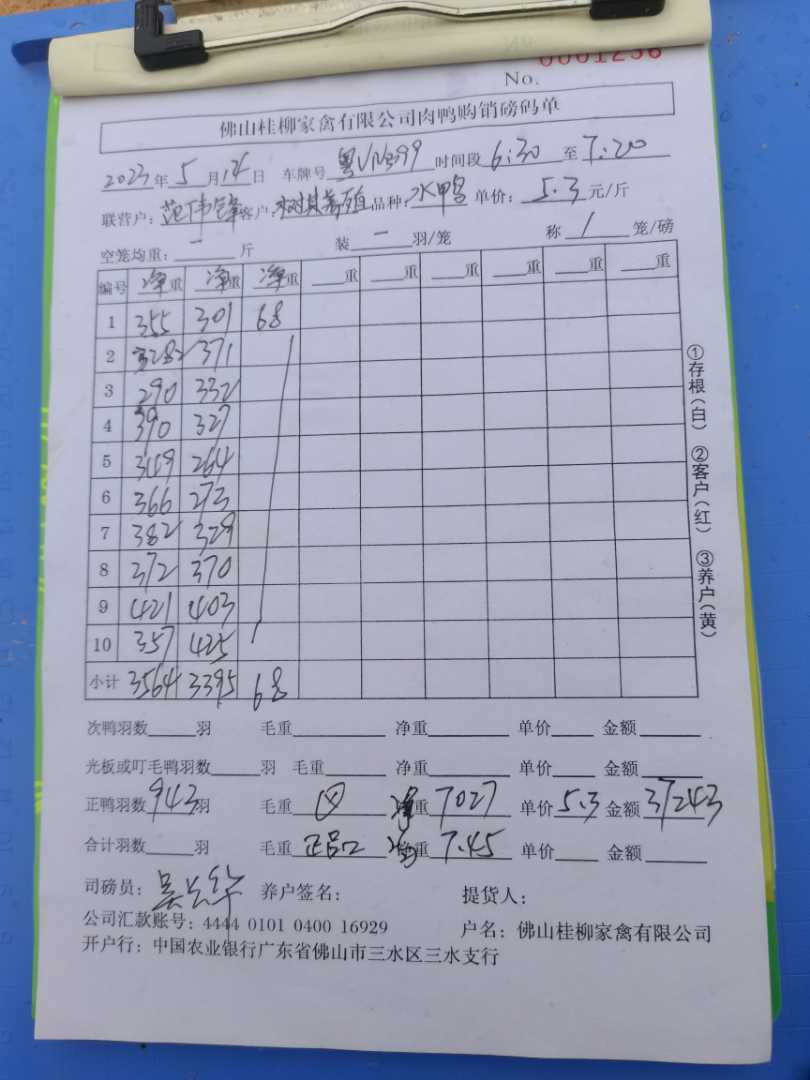 No. 0001256
佛山桂柳家禽有限公司肉鸭购销磅码单
2023年5月14日 车牌号粤VN399 时间段6:30至7:20
联营户:范伟锋 客户: 养殖 品种:水鸭 单价:5.3元/斤
空笼均重:一斤 装一羽/笼 称1笼/磅
编号 净重 净重 净重 重 重 重 重 重 重
1 355 301 68
2 282 371
3 290 332
4 390 327
5 349 264
6 366 273
7 382 329
8 372 370
9 421 403
10 357 425
小计 3564 3395 68
次鸭羽数 羽 毛重 净重 单价 金额
光板或叮毛鸭羽数 羽 毛重 净重 单价 金额
正鸭羽数943羽 毛重 净重7027 单价5.3 金额37243
合计羽数 羽 毛重 重7.45 单价 金额
司磅员: 养户签名: 提货人:
公司汇款账号:4444 0101 0400 16929 户名:佛山桂柳家禽有限公司
开户行:中国农业银行广东省佛山市三水区三水支行
①存根(白) ②客户(红) ③养户(黄)